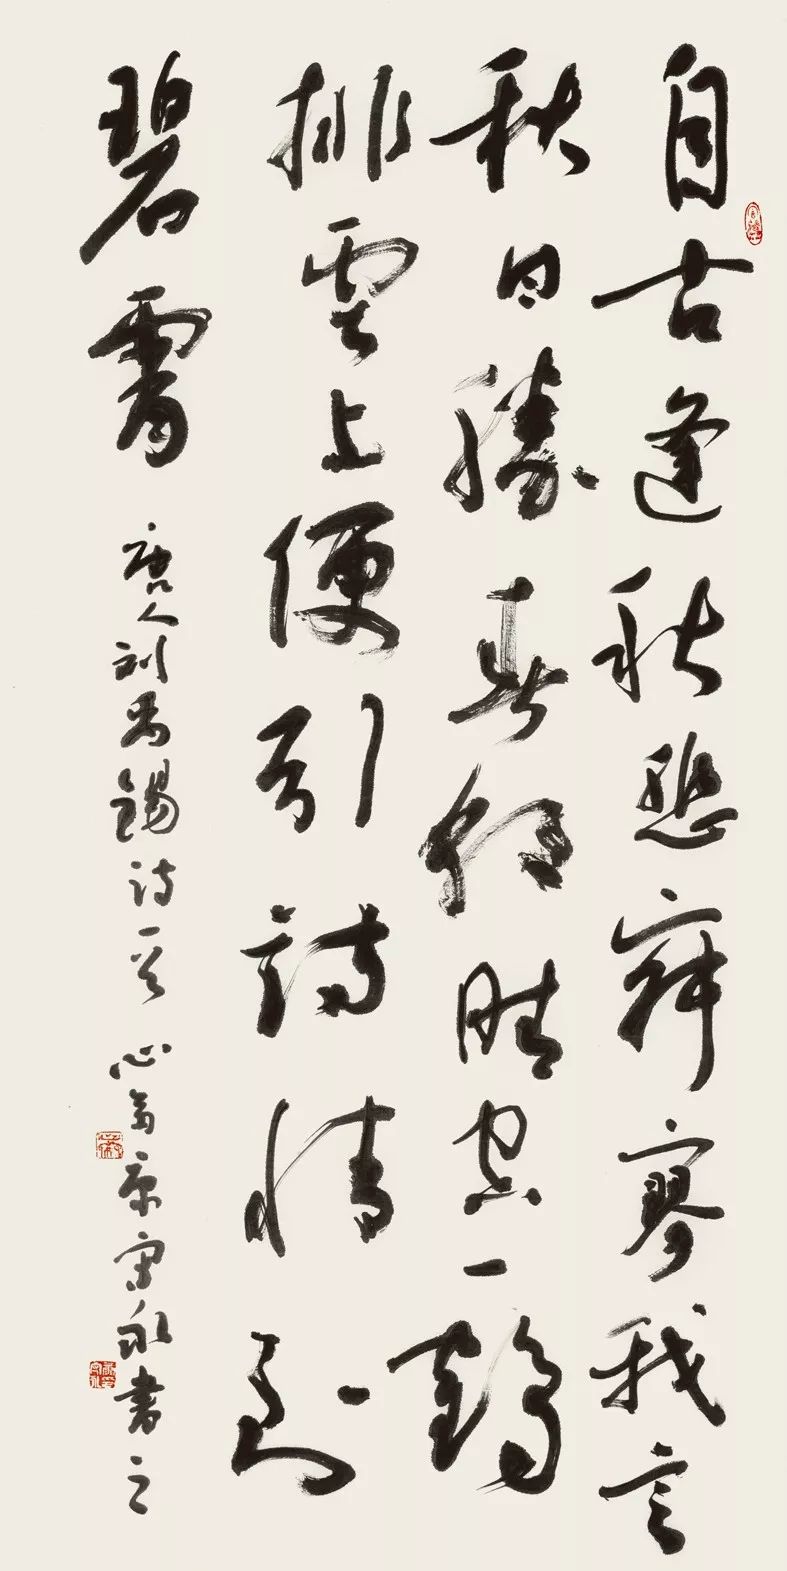 自古逢秋悲寂寥我言
秋日勝春朝晴空一鶴
排雲上便引詩情到
碧霄 唐人刘禹錫诗一首 心翁永書之